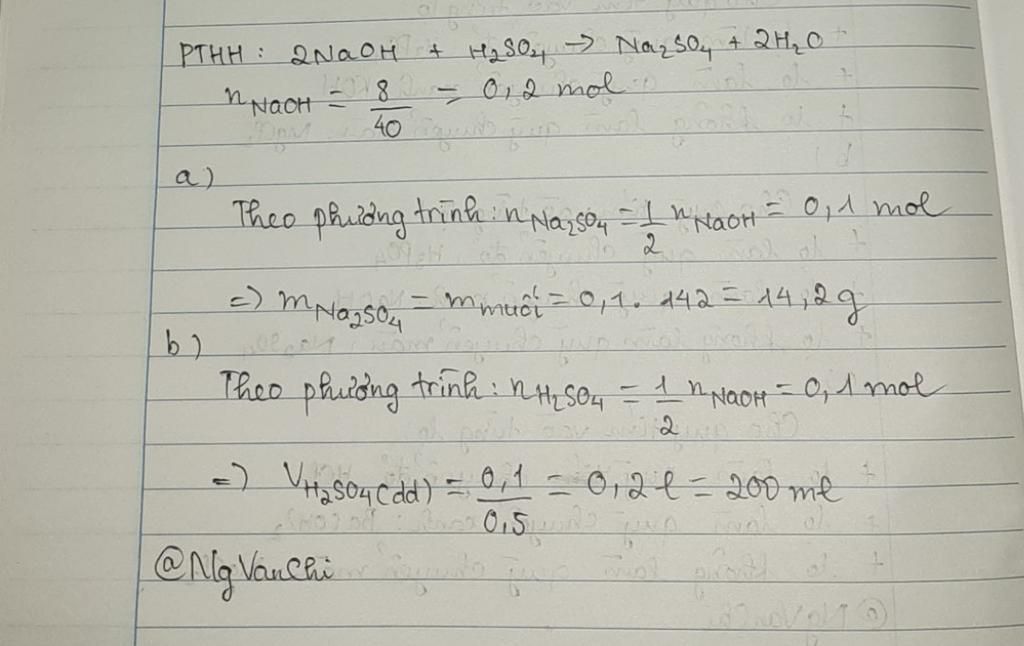 PTHH: 2NaOH + H₂SO₄ → Na₂SO₄ + 2H₂O
n NaOH = 8/40 = 0,2 mol
a)
Theo phương trình: n Na₂SO₄ = 1/2 n NaOH = 0,1 mol
=> m Na₂SO₄ = m muối = 0,1. 142 = 14,2 g
b)
Theo phương trình: n H₂SO₄ = 1/2 n NaOH = 0,1 mol
=> V H₂SO₄(dd) = 0,1/0,5 = 0,2 l = 200 ml
@NgVanChi